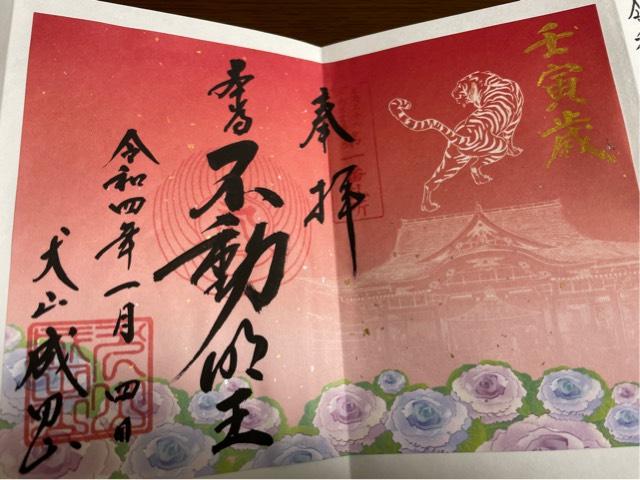 壬寅歳
奉拝
本尊不動明王
令和四年一月四日
犬山成田山